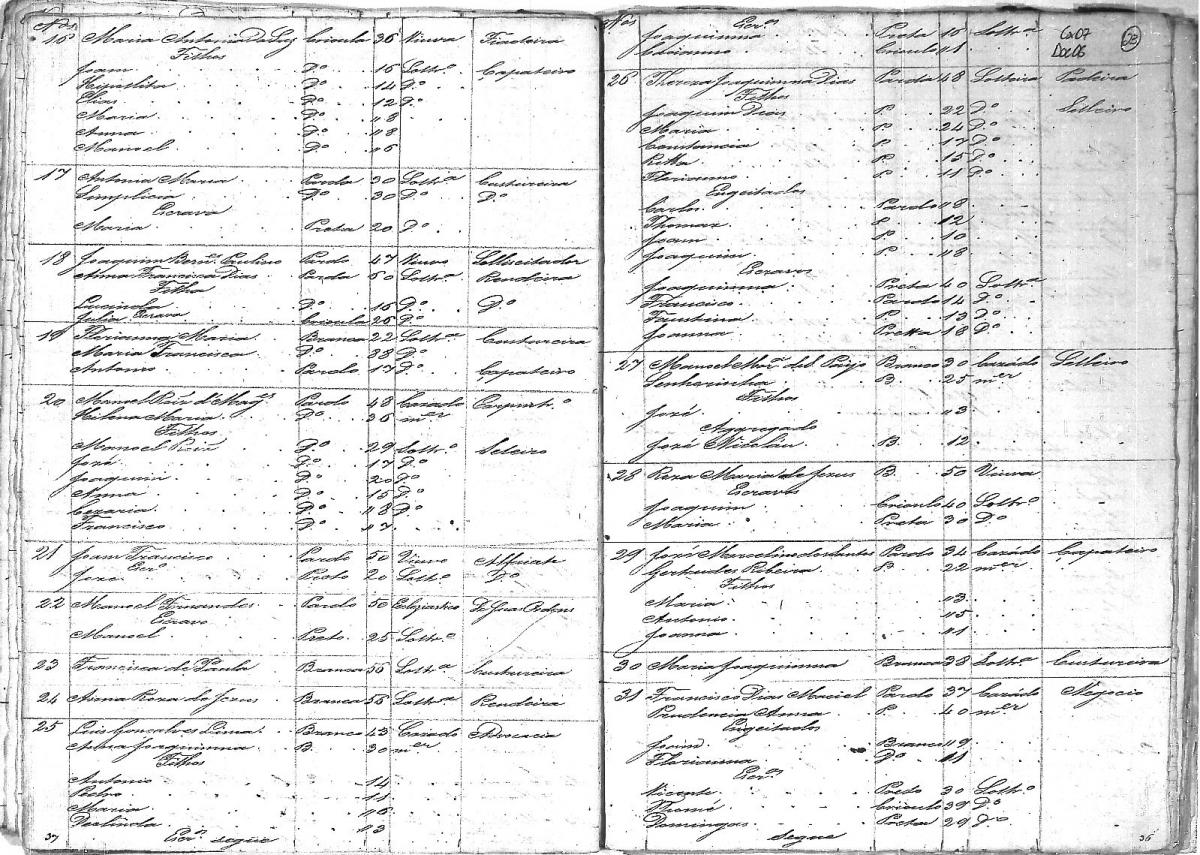 Nos
16 Maria Antonia da Luz Crioula 36 Viuva Fiadeira
Filhos
Joam Do 16 Soltro Çapateiro
Hipollita Do 14 Do
Elias Do 12 Do
Maria Do 8
Anna Do 8
Manoel Do 6
17 Antonia Maria Parda 30 Soltra Custureira
Simplicia Do 30 Do Do
Escrava
Maria Preta 20 Do
18 Joaquim Pardo 47 Viuvo Sollicitador
Anna Francisca Dias Parda 50 Soltra Rendeira
Filha
Lucinda Do 16 Do Do
Julia Escrava Crioula 26 Do
19 Florianna Maria Branca 22 Soltra Custureira
Maria Francisca Do 38 Do
Antonio Pardo 17 Do Çapateiro
20 Manoel Pardo 48 Cazado Carpintro
Helena Maria Do 36 mer
Filhos
Manoel Do 29 Soltro Seleiro
Joze Do 17 Do
Joaquim Do 20 Do
Anna Do 15 Do
Cezaria Do 8 Do
Francisco Do 7
21 Joam Francisco Pardo 50 Viuvo Alfaiate
Escro
Joze Preto 20 Soltro Do
22 Manoel Fernandes Pardo 50 Ecleziastico De Ordens
Escravo
Manoel Preto 25 Soltro
23 Francisca de Paula Branca 55 Soltra Custureira
24 Anna Roza de Jezus Branca 56 Soltra Rendeira
25 Luis Gonçalves Lima Branco 43 Cazado Advocacia
Anna Joaquinna B. 30 mer
Filhos
Antonio 14
Pedro 11
Maria 6
3
Escros segue
37
Nos
Escros
Joaquinna Preta 16 Soltra
Crioulo 11
Cx07
Doc06
26 Thereza Joaquinna Dias Parda 48 Solteira Padeira
Filhos
Joaquim Dias P. 22 Do Selleiro
Maria P. 24 Do
Constancia P. 17 Do
Ritta P. 15 Do
Florianno P. 11 Do
Engeitados
Carlos Pardo 8
Thomaz P. 12
Joam P. 10
Joaquim P. 8
Escravos
Joaquinna Preta 40 Soltra
Francisco Pardo 14 Do
Faustina P. 13 Do
Joanna Pretta 18 Do
27 Manoel Branco 30 Cazado Selleiro
Senhorinha B. 25 mer
Filhos
Jozé 3
Aggregado
Jozé Nicolau B. 12
28 Roza Maria de Jezus B. 50 Viuva
Escravos
Joaquim Crioulo 40 Soltro
Maria Preta 30 Do
29 Jozé Marcelino dos Santos Pardo 34 Cazado Çapateiro
Gertrudes Ribeira P. 22 mer
Filhos
Maria 3
Antonio 5
Joanna 1
30 Maria Joaquinna Branca 38 Soltra Custureira
31 Francisco Dias Maciel Pardo 37 Cazado Negocio
Prudencia Anna P. 40 mer
Engeitados
Joam Branco 9
Florianna Do 11
Escros
Vicente Preto 30 Soltro
Thomé Crioulo 39 Do
Domingas Preta 29 Do
Segue
36